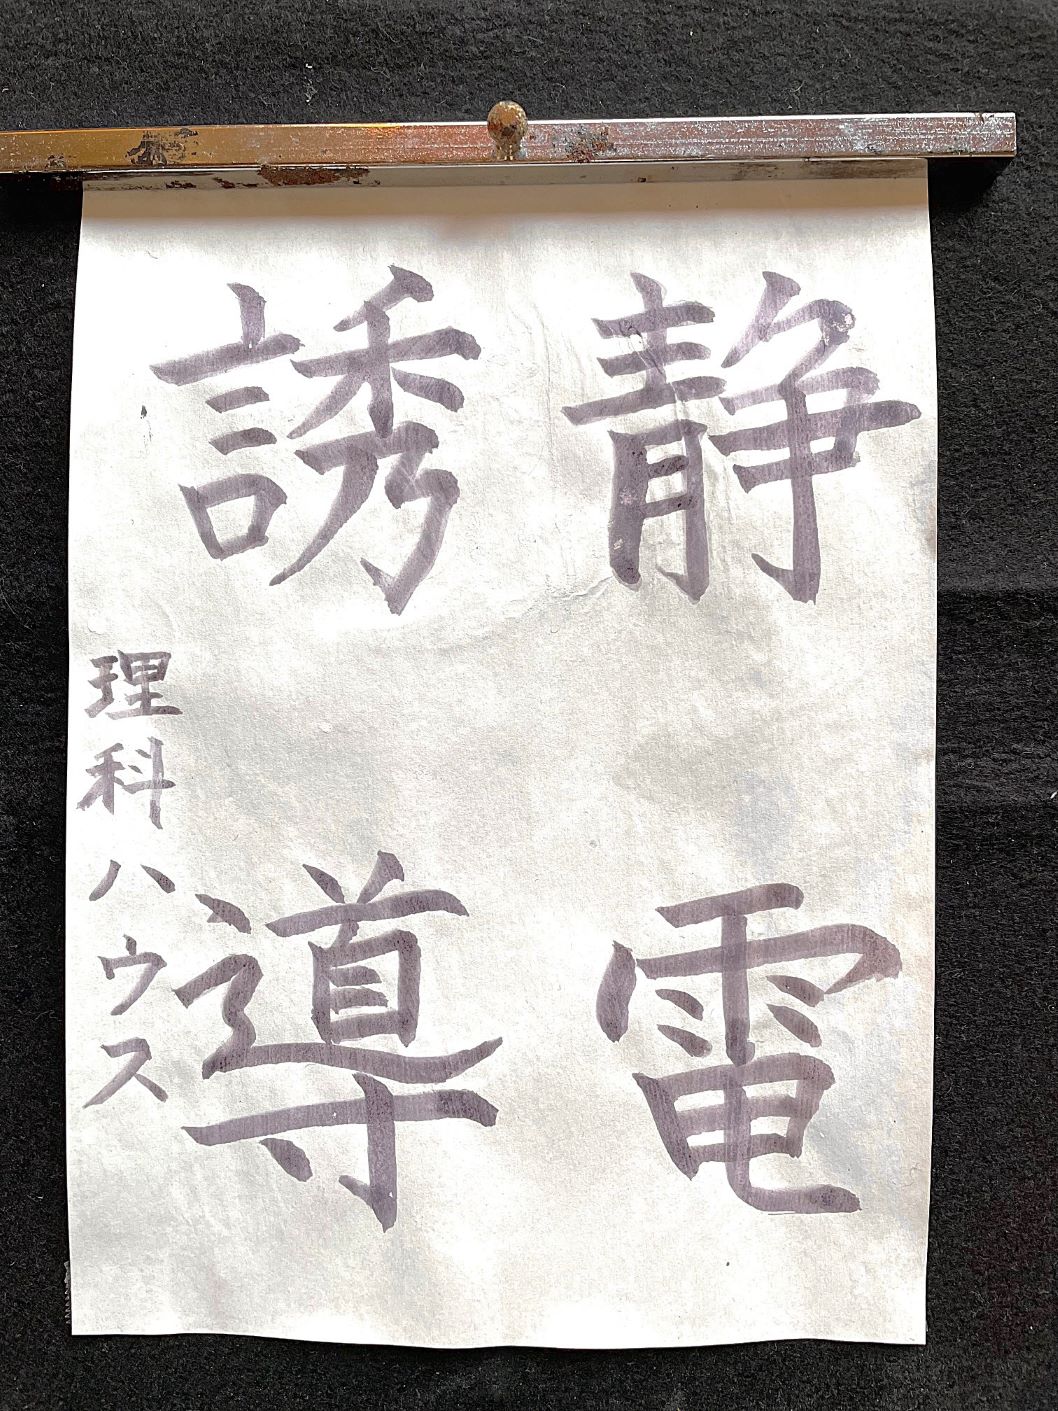 静電
誘導
理科ハウス